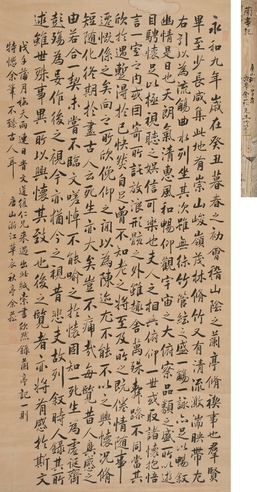 永和九年歲在癸丑暮春之初會稽山陰之蘭亭脩稧事也群賢
畢至少長咸集此地有崇山峻嶺茂林脩竹又有清流激湍映帶左
右引以為流觴曲水列坐其次雖無絲竹管絃之盛一觴一詠亦足以暢敘
幽情是日也天朗氣清惠風和暢仰觀宇宙之大俯察品類之盛所以遊
目騁懷足以極視聽之娛信可樂也夫人之相與俯仰一世或取諸懷抱悟
言一室之內或因寄所託放浪形骸之外雖趣舍萬殊靜躁不同當其
欣於所遇暫得於己快然自足不知老之將至及其所之既倦情隨事
遷感慨係之矣向之所欣俛仰之間以為陳迹猶不能不以之興懷況脩
短隨化終期於盡古人云死生亦大矣豈不痛哉每覽昔人興感之
由若合一契未嘗不臨文嗟悼不能喻之於懷固知一死生為虛誕齊
彭殤為妄作後之視今亦猶今之視昔悲夫故列敘時人錄其所
述雖世殊事異所以興懷其致一也後之覽者亦將有感於斯文
戊子蒲月梅天雨連日文遠仁兄過出此紙索書欣然錄蘭亭記一則
特愧余筆不臻古人耳
蘭亭記